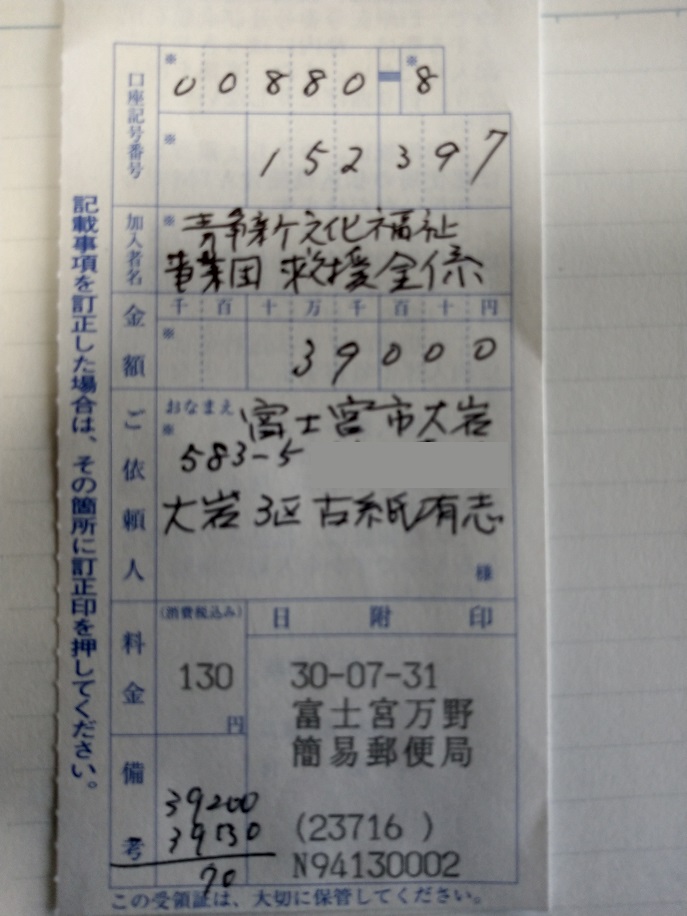 記載事項を訂正した場合は、その箇所に訂正印を押してください。
口座記号番号
※ 00880-※8
※ 152397
加入者名
※ 静新文化福祉
事業団 救援金係
金額
千 百 十 万 千 百 十 円
※ 39000
ご依頼人
おなまえ
※ 富士宮市大岩
583-5
大岩3区 古紙有志
様
料金
(消費税込み)
130
円
日 附 印
30-07-31
富士宮万野
簡易郵便局
(23716 )
N94130002
備考
39200
39130
70
この受領証は、大切に保管してください。